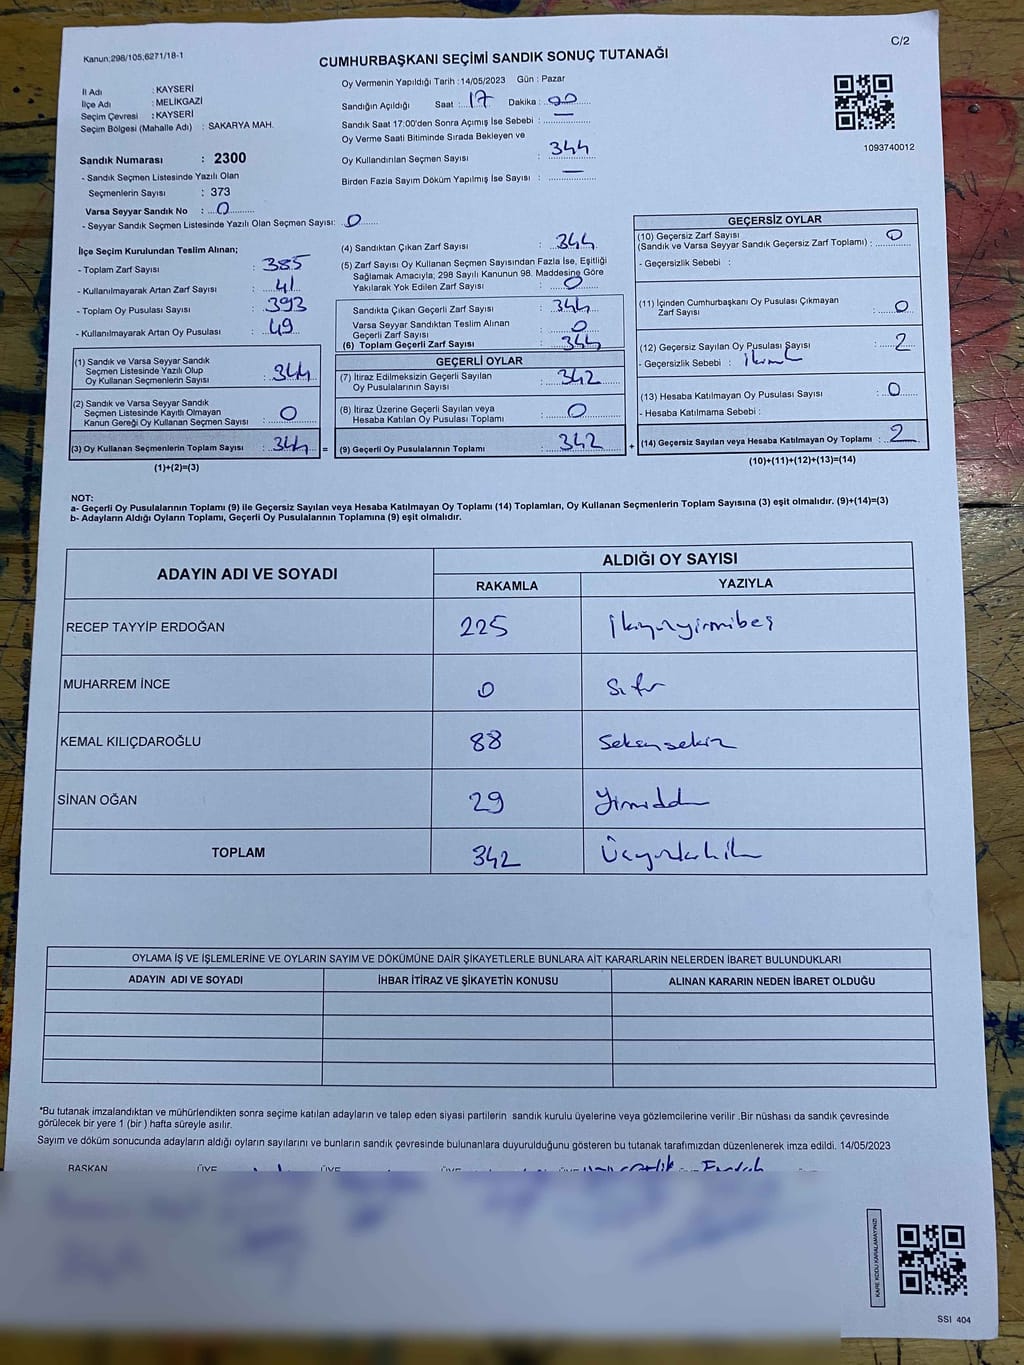 Kanun;298/105;6271/18-1
C/2
CUMHURBAŞKANI SEÇİMİ SANDIK SONUÇ TUTANAĞI
İl Adı : KAYSERİ
İlçe Adı : MELİKGAZİ
Seçim Çevresi : KAYSERİ
Seçim Bölgesi (Mahalle Adı) : SAKARYA MAH.
Sandık Numarası : 2300
- Sandık Seçmen Listesinde Yazılı Olan
Seçmenlerin Sayısı : 373
Varsa Seyyar Sandık No : 0
- Seyyar Sandık Seçmen Listesinde Yazılı Olan Seçmen Sayısı: 0
Oy Vermenin Yapıldığı Tarih : 14/05/2023 Gün : Pazar
Sandığın Açıldığı Saat : 17 Dakika : 00
Sandık Saat 17:00'den Sonra Açımış İse Sebebi : —
Oy Verme Saati Bitiminde Sırada Bekleyen ve
Oy Kullandırılan Seçmen Sayısı : 344
Birden Fazla Sayım Döküm Yapılmış İse Sayısı : —
1093740012
İlçe Seçim Kurulundan Teslim Alınan;
- Toplam Zarf Sayısı : 385
- Kullanılmayarak Artan Zarf Sayısı : 41
- Toplam Oy Pusulası Sayısı : 393
- Kullanılmayarak Artan Oy Pusulası : 49
(1) Sandık ve Varsa Seyyar Sandık
Seçmen Listesinde Yazılı Olup
Oy Kullanan Seçmenlerin Sayısı : 344
(2) Sandık ve Varsa Seyyar Sandık
Seçmen Listesinde Kayıtlı Olmayan
Kanun Gereği Oy Kullanan Seçmen Sayısı : 0
(3) Oy Kullanan Seçmenlerin Toplam Sayısı : 344 =
(1)+(2)=(3)
(4) Sandıktan Çıkan Zarf Sayısı : 344
(5) Zarf Sayısı Oy Kullanan Seçmen Sayısından Fazla İse, Eşitliği
Sağlamak Amacıyla; 298 Sayılı Kanunun 98. Maddesine Göre
Yakılarak Yok Edilen Zarf Sayısı : 0
Sandıkta Çıkan Geçerli Zarf Sayısı : 344
Varsa Seyyar Sandıktan Teslim Alınan
Geçerli Zarf Sayısı : 0
(6) Toplam Geçerli Zarf Sayısı : 344
GEÇERLİ OYLAR
(7) İtiraz Edilmeksizin Geçerli Sayılan
Oy Pusulalarının Sayısı : 342
(8) İtiraz Üzerine Geçerli Sayılan veya
Hesaba Katılan Oy Pusulası Toplamı : 0
(9) Geçerli Oy Pusulalarının Toplamı : 342 +
GEÇERSİZ OYLAR
(10) Geçersiz Zarf Sayısı
(Sandık ve Varsa Seyyar Sandık Geçersiz Zarf Toplamı) : 0
- Geçersizlik Sebebi :
(11) İçinden Cumhurbaşkanı Oy Pusulası Çıkmayan
Zarf Sayısı : 0
(12) Geçersiz Sayılan Oy Pusulası Sayısı : 2
- Geçersizlik Sebebi :
(13) Hesaba Katılmayan Oy Pusulası Sayısı : 0
- Hesaba Katılmama Sebebi :
(14) Geçersiz Sayılan veya Hesaba Katılmayan Oy Toplamı : 2
(10)+(11)+(12)+(13)=(14)
NOT:
a- Geçerli Oy Pusulalarının Toplamı (9) ile Geçersiz Sayılan veya Hesaba Katılmayan Oy Toplamı (14) Toplamları, Oy Kullanan Seçmenlerin Toplam Sayısına (3) eşit olmalıdır. (9)+(14)=(3)
b- Adayların Aldığı Oyların Toplamı, Geçerli Oy Pusulalarının Toplamına (9) eşit olmalıdır.
ADAYIN ADI VE SOYADI
ALDIĞI OY SAYISI
RAKAMLA YAZIYLA
RECEP TAYYİP ERDOĞAN 225 ikiyüzyirmibeş
MUHARREM İNCE 0 Sıfır
KEMAL KILIÇDAROĞLU 88 Seksensekiz
SİNAN OĞAN 29
TOPLAM 342
OYLAMA İŞ VE İŞLEMLERİNE VE OYLARIN SAYIM VE DÖKÜMÜNE DAİR ŞİKAYETLERLE BUNLARA AİT KARARLARIN NELERDEN İBARET BULUNDUKLARI
ADAYIN ADI VE SOYADI İHBAR İTİRAZ VE ŞİKAYETİN KONUSU ALINAN KARARIN NEDEN İBARET OLDUĞU
*Bu tutanak imzalandıktan ve mühürlendikten sonra seçime katılan adayların ve talep eden siyasi partilerin sandık kurulu üyelerine veya gözlemcilerine verilir .Bir nüshası da sandık çevresinde
görülecek bir yere 1 (bir ) hafta süreyle asılır.
Sayım ve döküm sonucunda adayların aldığı oyların sayılarını ve bunların sandık çevresinde bulunanlara duyurulduğunu gösteren bu tutanak tarafımızdan düzenlenerek imza edildi. 14/05/2023
BAŞKAN ÜYE ÜYE ÜYE
KARE KODU KARALAMAYINIZ!
SSI 404